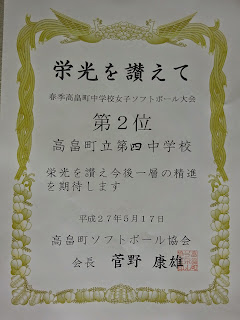 栄光を讃えて
春季高畠町中学校女子ソフトボール大会
第２位
高畠町立第四中学校
栄光を讃え今後一層の精進
を期待します
平成２７年５月１７日
高畠町ソフトボール協会
会長 菅野 康雄